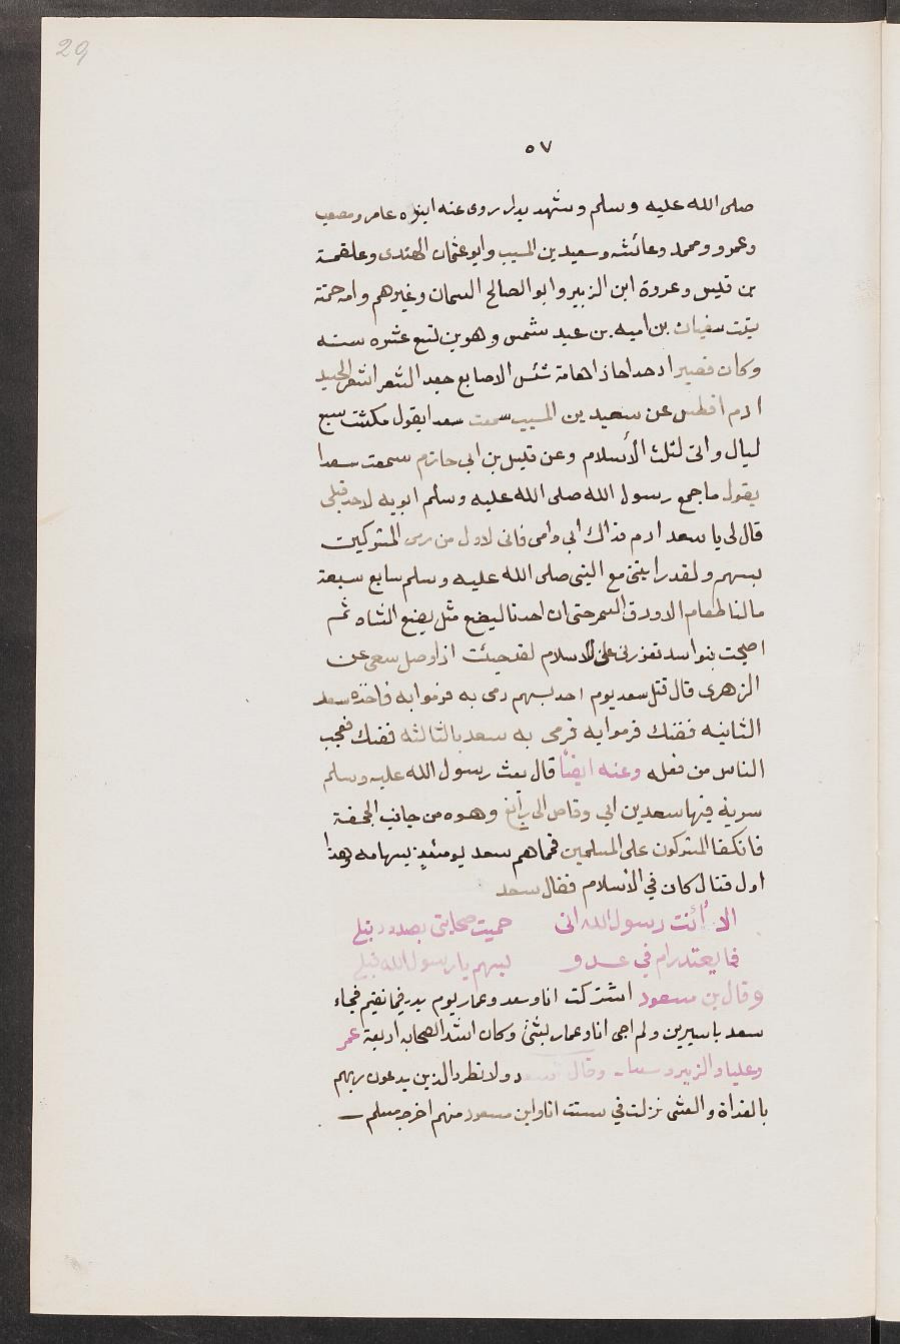 29
٥٧
صلى الله عليه وسلم وشهد بدار روى عنه ابنوه عامر ومصعب
وعمرو ومحمد وعائشه وسعيد بن المسيب وابو عثمان الهندى وعلقمة
بن قليس وعروة ابن الزبير وابو الصالح السمان وغيرهم وامه حمنة
بنت سفيان بن اميه بن عبد شمس وهو بن لتسع عشره سنه
وكان قصيرا دحداحا ذا هامة شئس الاصابع جعد الشعر اشعر الجسد
ادم افطس عن سعيد بن المسيب سمعت سعدا يقول مكثت سبع
ليال وانى لثلث الأسلام وعن قليس بن ابى حازم سمعت سعدا
يقول ما جمع رسول الله صلى الله عليه وسلم ابويه لاحد قبلى
قال لى يا سعد ارم فداك ابى وامى فانى لاول من رمى المشركين
بسهم ولقد رايتنى مع النبى صلى الله عليه وسلم سابع سبعة
مالنا طعام الا ورق السمر حتى ان احدنا ليضع مثل يضع الشاه ثم
اصبحت بنوا سد تعزرنى على الاسلام لقد خبت اذا وصل سعى عن
الزهرى قال قتل سعد يوم احد بسهم رمى به فرموا به فاخذه سعد
الثانيه فقتل فرموا به فرمى به سعد بالثالثه فقتل فعجب
الناس من فعله وعنه ايضًا قال بعث رسول الله عليه وسلم
سرية فيها سعد بن ابى وقاص الى رابغ وهوه من جانب الجحفة
فانكفا المشركون على المسلمين فحماهم سعد يومئذٍ بسهامه وهذا
اول قتال كان في الأسلام فقال سعد
الا أئنت رسول الله انى حميت صحابتى بصدور نبلى
فما يعتد رام في عدو بسهم يا رسول الله قبلى
وقال بن مسعود اشتركت انا وسعد وعمار يوم بدر فيما نقيم فجاء
سعد باسيرين ولم اجى انا وعمار بشئ وكان اشد الصحابه اربعة عمر
وعليا والزبير وسعدا وقال سعد ولا تطرد الذين يدعون ربهم
بالغداة والعشى نزلت في ستت انا وابن مسعود منهم اخرجه مسلم